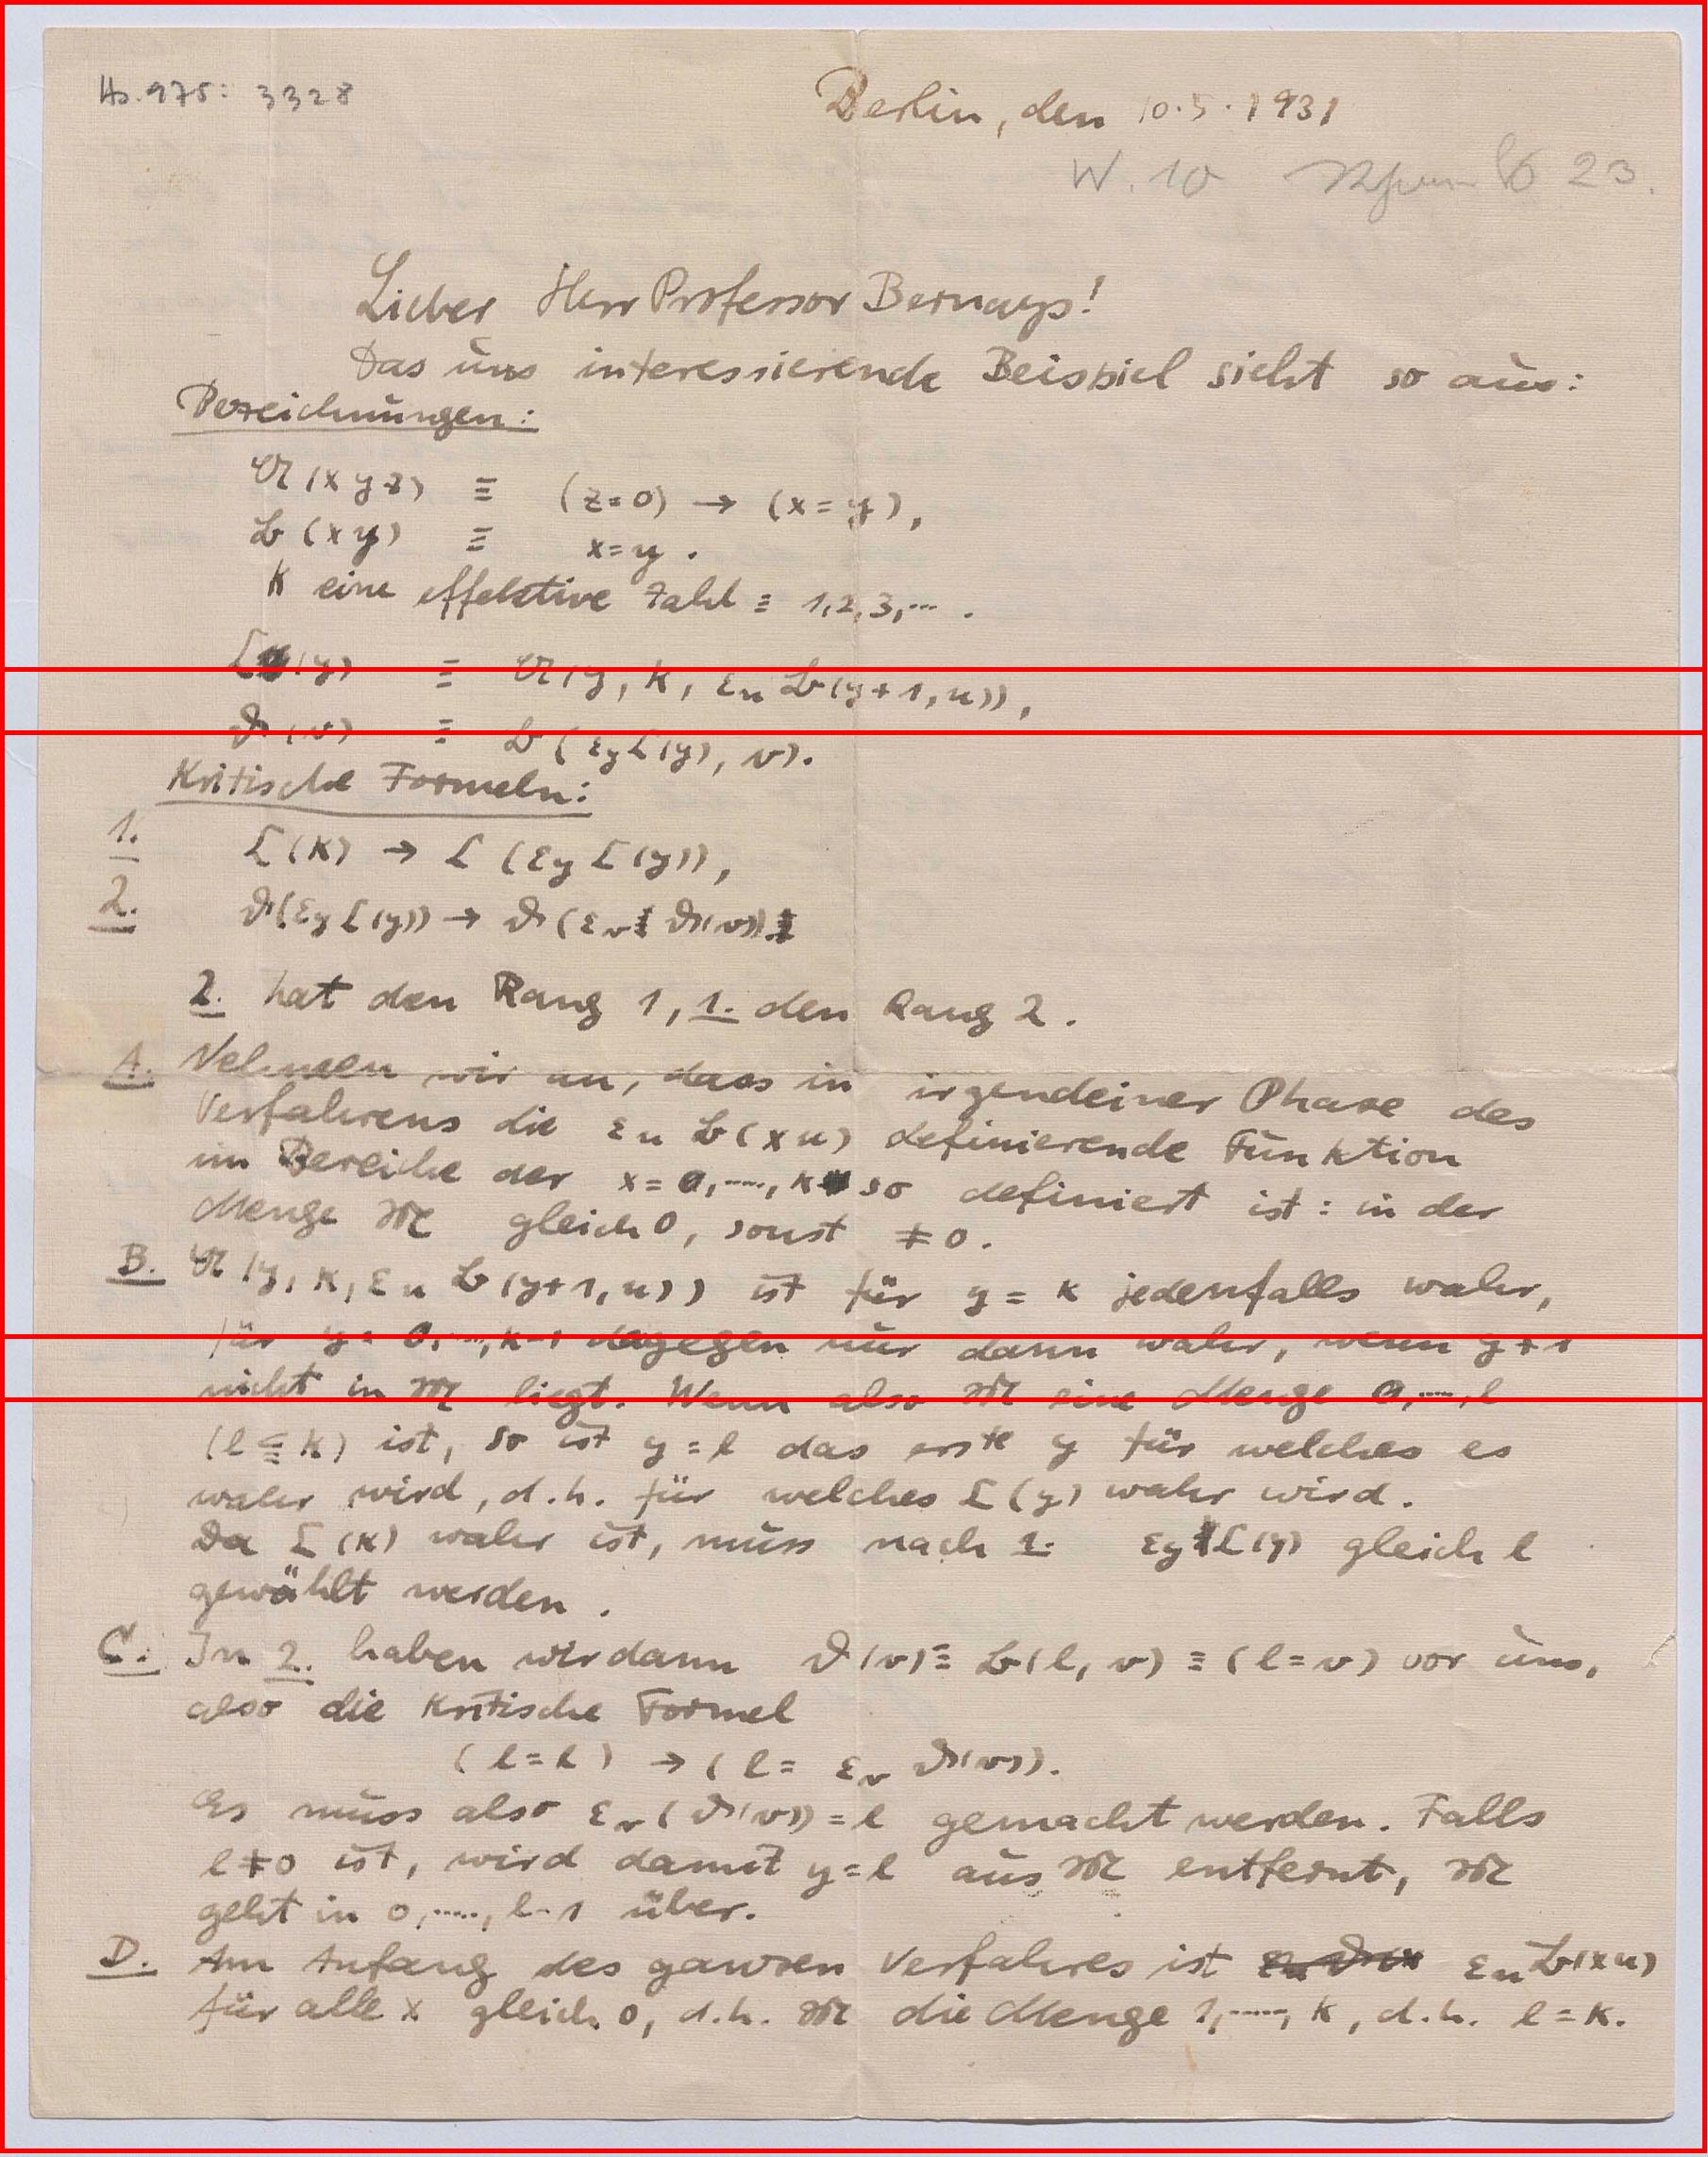 Hs. 975: 3328
Berlin, den 10.5.1931
W. 10 23.
Lieber Herr Professor Bernays!
Das uns interessierende Beispiel sieht so aus:
Bezeichnungen:
𝔄(x y z) ≡ (z=0) → (x=y),
𝔅(x y) ≡ x=y.
K eine effektive Zahl ≡ 1,2,3,... .
ℭ(y) ≡ 𝔄(y, K, εu 𝔅(y+1, u)),
𝔇(v) ≡ 𝔅(εy ℭ(y), v).
Kritische Formeln:
1. ℭ(K) → ℭ(εy ℭ(y)),
2. 𝔇(εy ℭ(y)) → 𝔇(εv 𝔇(v))
2. hat den Rang 1, 1. den Rang 2.
A. Nehmen wir an, dass in irgendeiner Phase des
Verfahrens die εu 𝔅(x u) definierende Funktion
im Bereiche der x=0,....,K so definiert ist: in der
Menge 𝔐 gleich 0, sonst ≠0.
B. 𝔄(y, K, εu 𝔅(y+1, u)) ist für y = K jedenfalls wahr,
für y = 0,...,K-1 dagegen nur dann wahr, wenn y+1
nicht in 𝔐 liegt. Wenn also 𝔐 eine Menge 0,....,l
(l ≦ K) ist, so ist y=l das erste y für welches es
wahr wird, d.h. für welches ℭ(y) wahr wird.
Da ℭ(K) wahr ist, muss nach 1. εy ℭ(y) gleich l
gewählt werden.
C. In 2. haben wir dann 𝔇(v) ≡ 𝔅(l, v) ≡ (l=v) vor uns,
also die kritische Formel
(l=l) → (l= εv 𝔇(v)).
Es muss also εv(𝔇(v))=l gemacht werden. Falls
l≠0 ist, wird damit y=l aus 𝔐 entfernt, 𝔐
geht in 0,....., l-1 über.
D. Am Anfang des ganzen Verfahres ist εu 𝔅(x u)
für alle x gleich 0, d.h. 𝔐 die Menge 1,....., K, d.h. l=K.